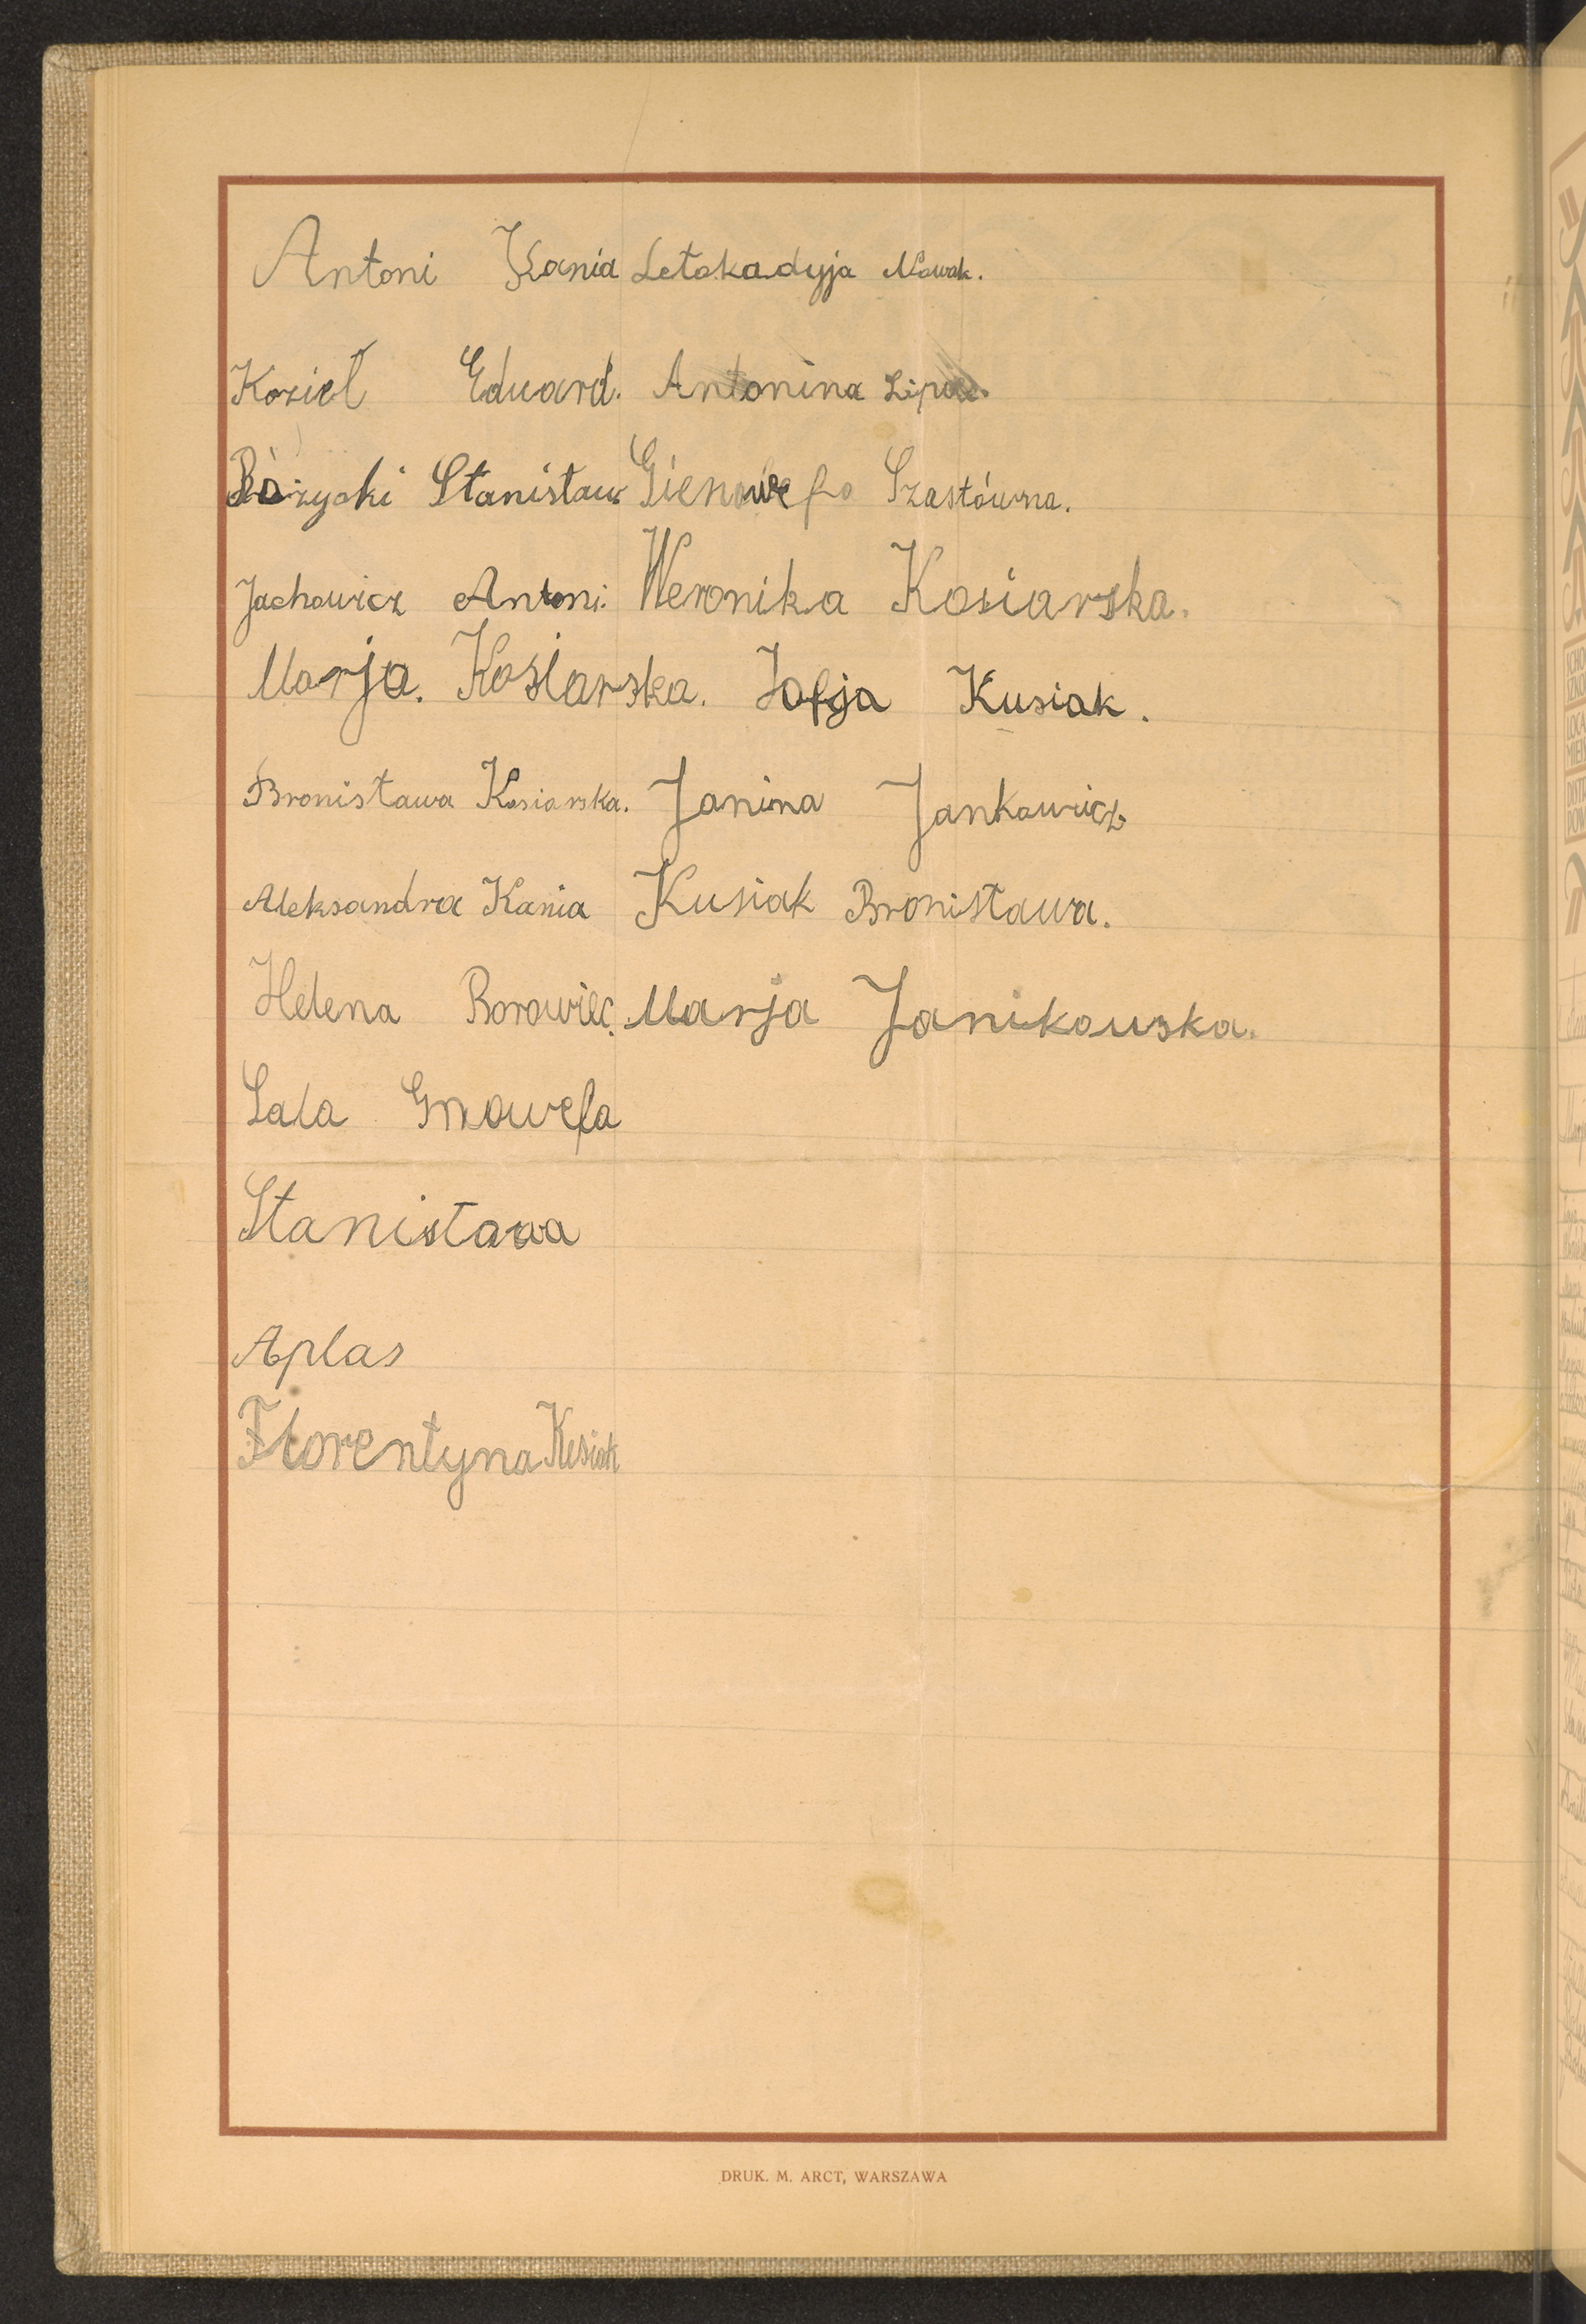 Antoni Kania Letokadyja Nowak.
Kozieł Eduard. Antonina Lipiec.
Różycki Stanisław Gienowefa Szastówna.
Jachowicz Antoni. Weronika Kosiarska.
Marja. Kośiarska. Zofja Kusiak.
Bronisława Kosiarska. Janina Jankowicz
Aleksandra Kania Kusiak Bronisława.
Helena Borowiec. Marja Janikowska.
Lala Gnowefa
Stanisława
Aplas
Florentyna Kusiak
DRUK. M. ARCT, WARSZAWA